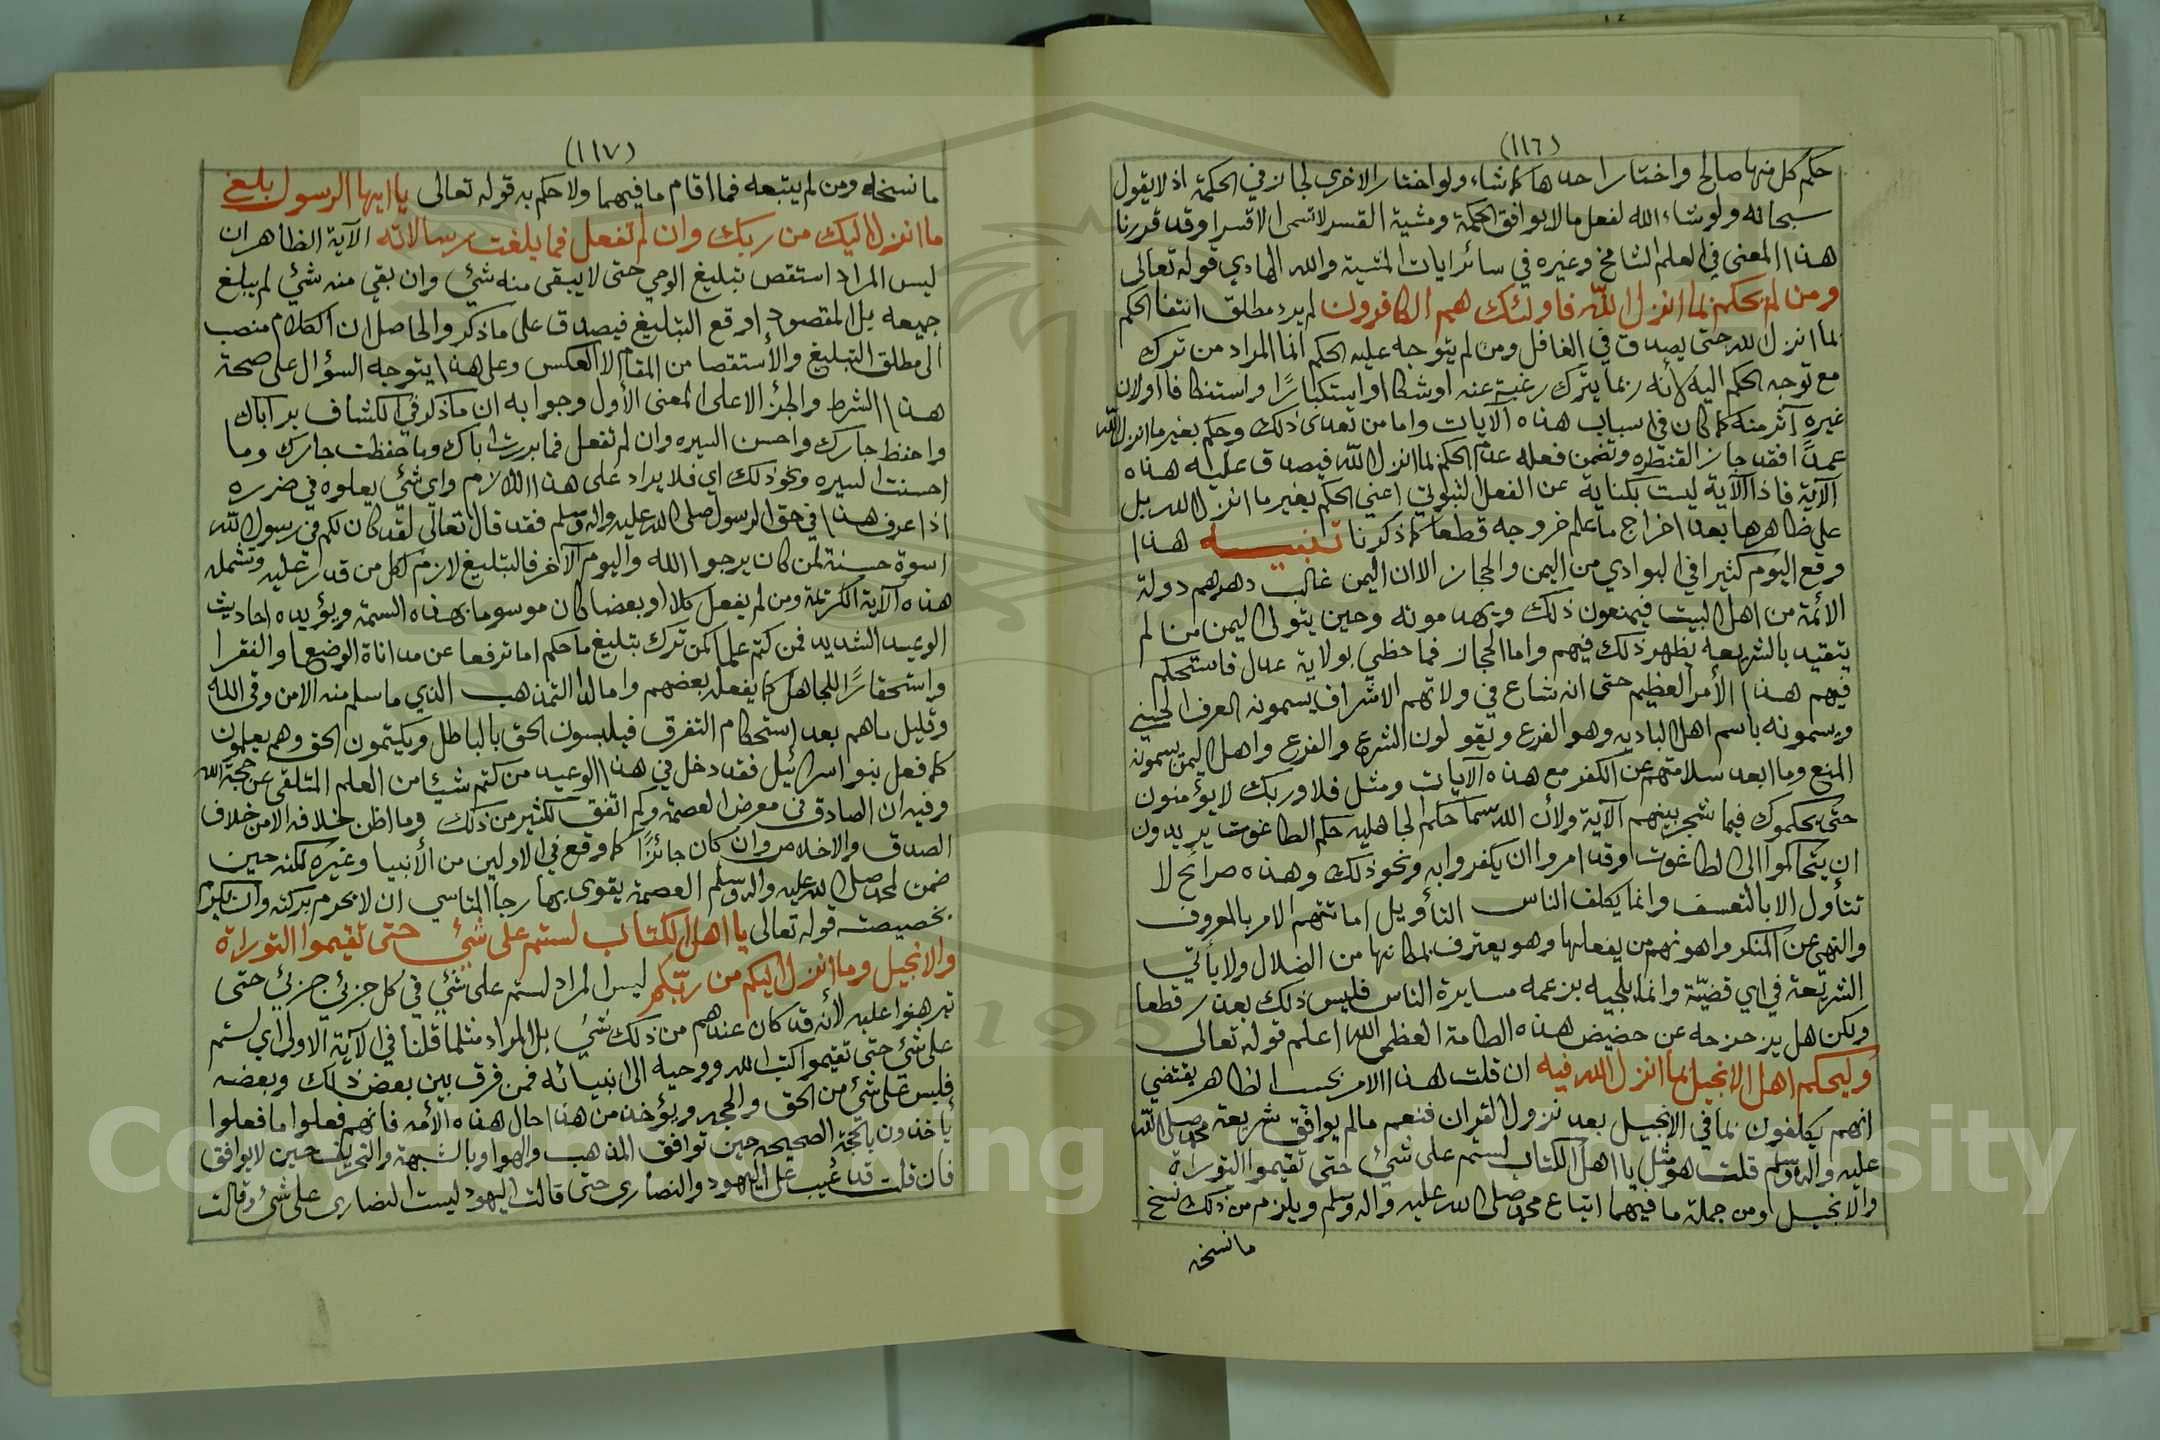 (١١٦)
حكم كل منها صالح واختار احدها كما شاء ولو اختار الاخرى لجاز في الحكمة اذ لا يقول
سبحانه ولو شاء الله لفعل ما لا يوافق الحكمة ومشية القسر لا تسمى الا قسرا وقد قررنا
هذا المعنى في العلم الشامخ وغيره في سائر ايات المشية والله الهادي قوله تعالى
ومن لم يحكم بما انزل الله فاولئك هم الكافرون لم يرد مطلق انتفا الحكم
بما انزل الله حتى يصدق في الغافل ومن لم يتوجه عليه الحكم انما المراد من ترك
مع توجه الحكم اليه لأنه ربما يترك رغبة عنه او شكا او استكبارًا واستنكافا اولان
غيره آثر منه كما كان في اسباب هذه الايات واما من تعدى ذلك وحكم بغير ما انزل الله
عمدًا فقد جاز القنطره وتضمن فعله عدم الحكم بما انزل الله فيصدق عليه هذه
الآية فاذا الآية ليست بكناية عن الفعل الثبوتي اعني الحكم بغير ما انزل الله بل
على ظاهرها بعد اخراج ما علم خروجه قطعا كما ذكرنا تنبيه هذا
وقع اليوم كثيرا في البوادي من اليمن والحجاز الا ان اليمن غالب دهرهم دولة
الائمة من اهل البيت فيمنعون ذلك ويهدمونه وحين يتولى اليمن من لم
يتقيد بالشريعه يظهر ذلك فيهم واما الحجاز فما حظي بولاية عدل فاستحكم
فيهم هذا الأمر العظيم حتى انه شاع في ولاتهم الاشراف يسمونه العرف الحسني
ويسمونه باسم اهل الباديه وهو الفرع ويقولون الشرع والفرع واهل اليمن يسمونه
المنع وما ابعد سلامتهم عن الكفر مع هذه الآيات ومثل فلا وربك لا يؤمنون
حتى يحكموك فيما شجر بينهم الآية ولأن الله سما حكم الجاهليه حكم الطاغوت يريدون
ان يتحاكموا الى الطاغوت وقد امروا ان يكفروا به ونحو ذلك وهذه صرائح لا
تتأول الا بالتعسف وانما يكلف الناس التأويل امامتهم الامر بالمعروف
والنهي عن المنكر واهونهم من يفعلها وهو يعترف بمكانها من الضلال ولا يأتي
الشريعة في اي قضيّة وانما يلجيه بزعمه مسايرة الناس فليس ذلك بعذر قطعا
ولكن هل يزحزحه عن حضيض هذه الطامة العظمى الله اعلم قوله تعالى
وليحكم اهل الانجيل بما انزل الله فيه ان قلت هذا الامر بحسب الظاهر يقتضي
انهم يكلفون بما في الانجيل بعد نزول القران فنعم ما لم يوافق شريعة محمد صلى الله
عليه واله وسلم قلت هو مثل يا اهل الكتاب لستم على شئ حتى تقيموا التوراة
والانجيل ومن جملة ما فيهما اتباع محمد صلى الله عليه واله وسلم ويلزم من ذلك نسخ
ما نسخه
(١١٧)
ما نسخه ومن لم يتبعه فما اقام ما فيهما ولا حكم به قوله تعالى يا ايها الرسول بلغ
ما انزل اليك من ربك وان لم تفعل فما بلغت رسالاته الآية الظاهر ان
ليس المراد استقص بتبليغ الوحي حتى لا يبقى منه شئ وان بقي منه شئ لم يبلغ
جميعه بل المقصود اوقع التبليغ فيصدق على ما ذكر والحاصل ان الكلام منصب
الى مطلق التبليغ والأستقصا من المقام لا العكس وعلى هذا يتوجه السؤال على صحة
هذا الشرط والجزا لا على المعنى الأول وجوابه ان ما ذكر في الكشاف بر اباك
واحفظ جارك واحسن السيره وان لم تفعل فما بررت اباك وما حفظت جارك وما
احسنت السيره ونحو ذلك اي فلا يراد على هذا اللازم واي شئ يعلوه في ضرره
اذا عرف هذا في حق الرسول صلى الله عليه واله وسلم فقد قال تعالى لقد كان لكم في رسول الله
اسوة حسنة لمن كان يرجوا الله واليوم الآخر فالتبليغ لازم لكل من قدر عليه وتشمله
هذه الآية الكريمة ومن لم يفعل كلا او بعضا كان موسوما بهذه السمة ويؤيده احاديث
الوعيد الشديد فمن كتم علما كمن ترك بتبليغ ما حكم اما ترفعا عن مداناة الوضعا والفقرا
واستحقارًا للجاهل كما يفعله بعضهم واما لدا التمذهب الذي ما سلم منه الا من وقى الله
وقليل ما هم بعد استحكام التفرق فيلبسون الحق بالباطل ويكتمون الحق وهم يعلمون
كما فعل بنو اسرائيل فقد دخل في هذا الوعيد من كتم شيئا من العلم المتلقى عن حجة الله
وفيه ان الصادق في معرض العصمة وكم اتفق لكثير من ذلك وما اظن خلافه الا من خلاف
الصدق والاخلاص وان كان جائزًا كما وقع في الاولين من الأنبيا وغيره لكنه حين
ضمن لمحمد صلى الله عليه واله وسلم العصمة يقوى بها رجا المتاسي ان لا يحرم بركته وان
بخصيصته قوله تعالى يا اهل الكتاب لستم على شئ حتى تقيموا التوراة
والانجيل وما انزل اليكم من ربّكم ليس المراد لستم على شئ في كل جزئي جزئي حتى
تبرهنوا عليه لأنه قد كان عندهم من ذلك شئ بل المراد مثلما قلنا في الآية الاولى اي لستم
على شئ حتى تقيموا كتب الله ووحيه الى انبيائه فمن فرق بين بعض ذلك وبعضه
فليس على شئ من الحق والحجه ويؤخذ من هذا حال هذه الأمه فانهم فعلوا ما فعلوا
يأخذون بالحجة الصحيحه حين توافق المذهب والهوا وبالشبهة والتحريف حين لا يوافق
فان قلت قد عيب على اليهود والنصارى حتى قالت اليهود ليست النصارى على شئ وقالت
Copyright © King Saud University
1957